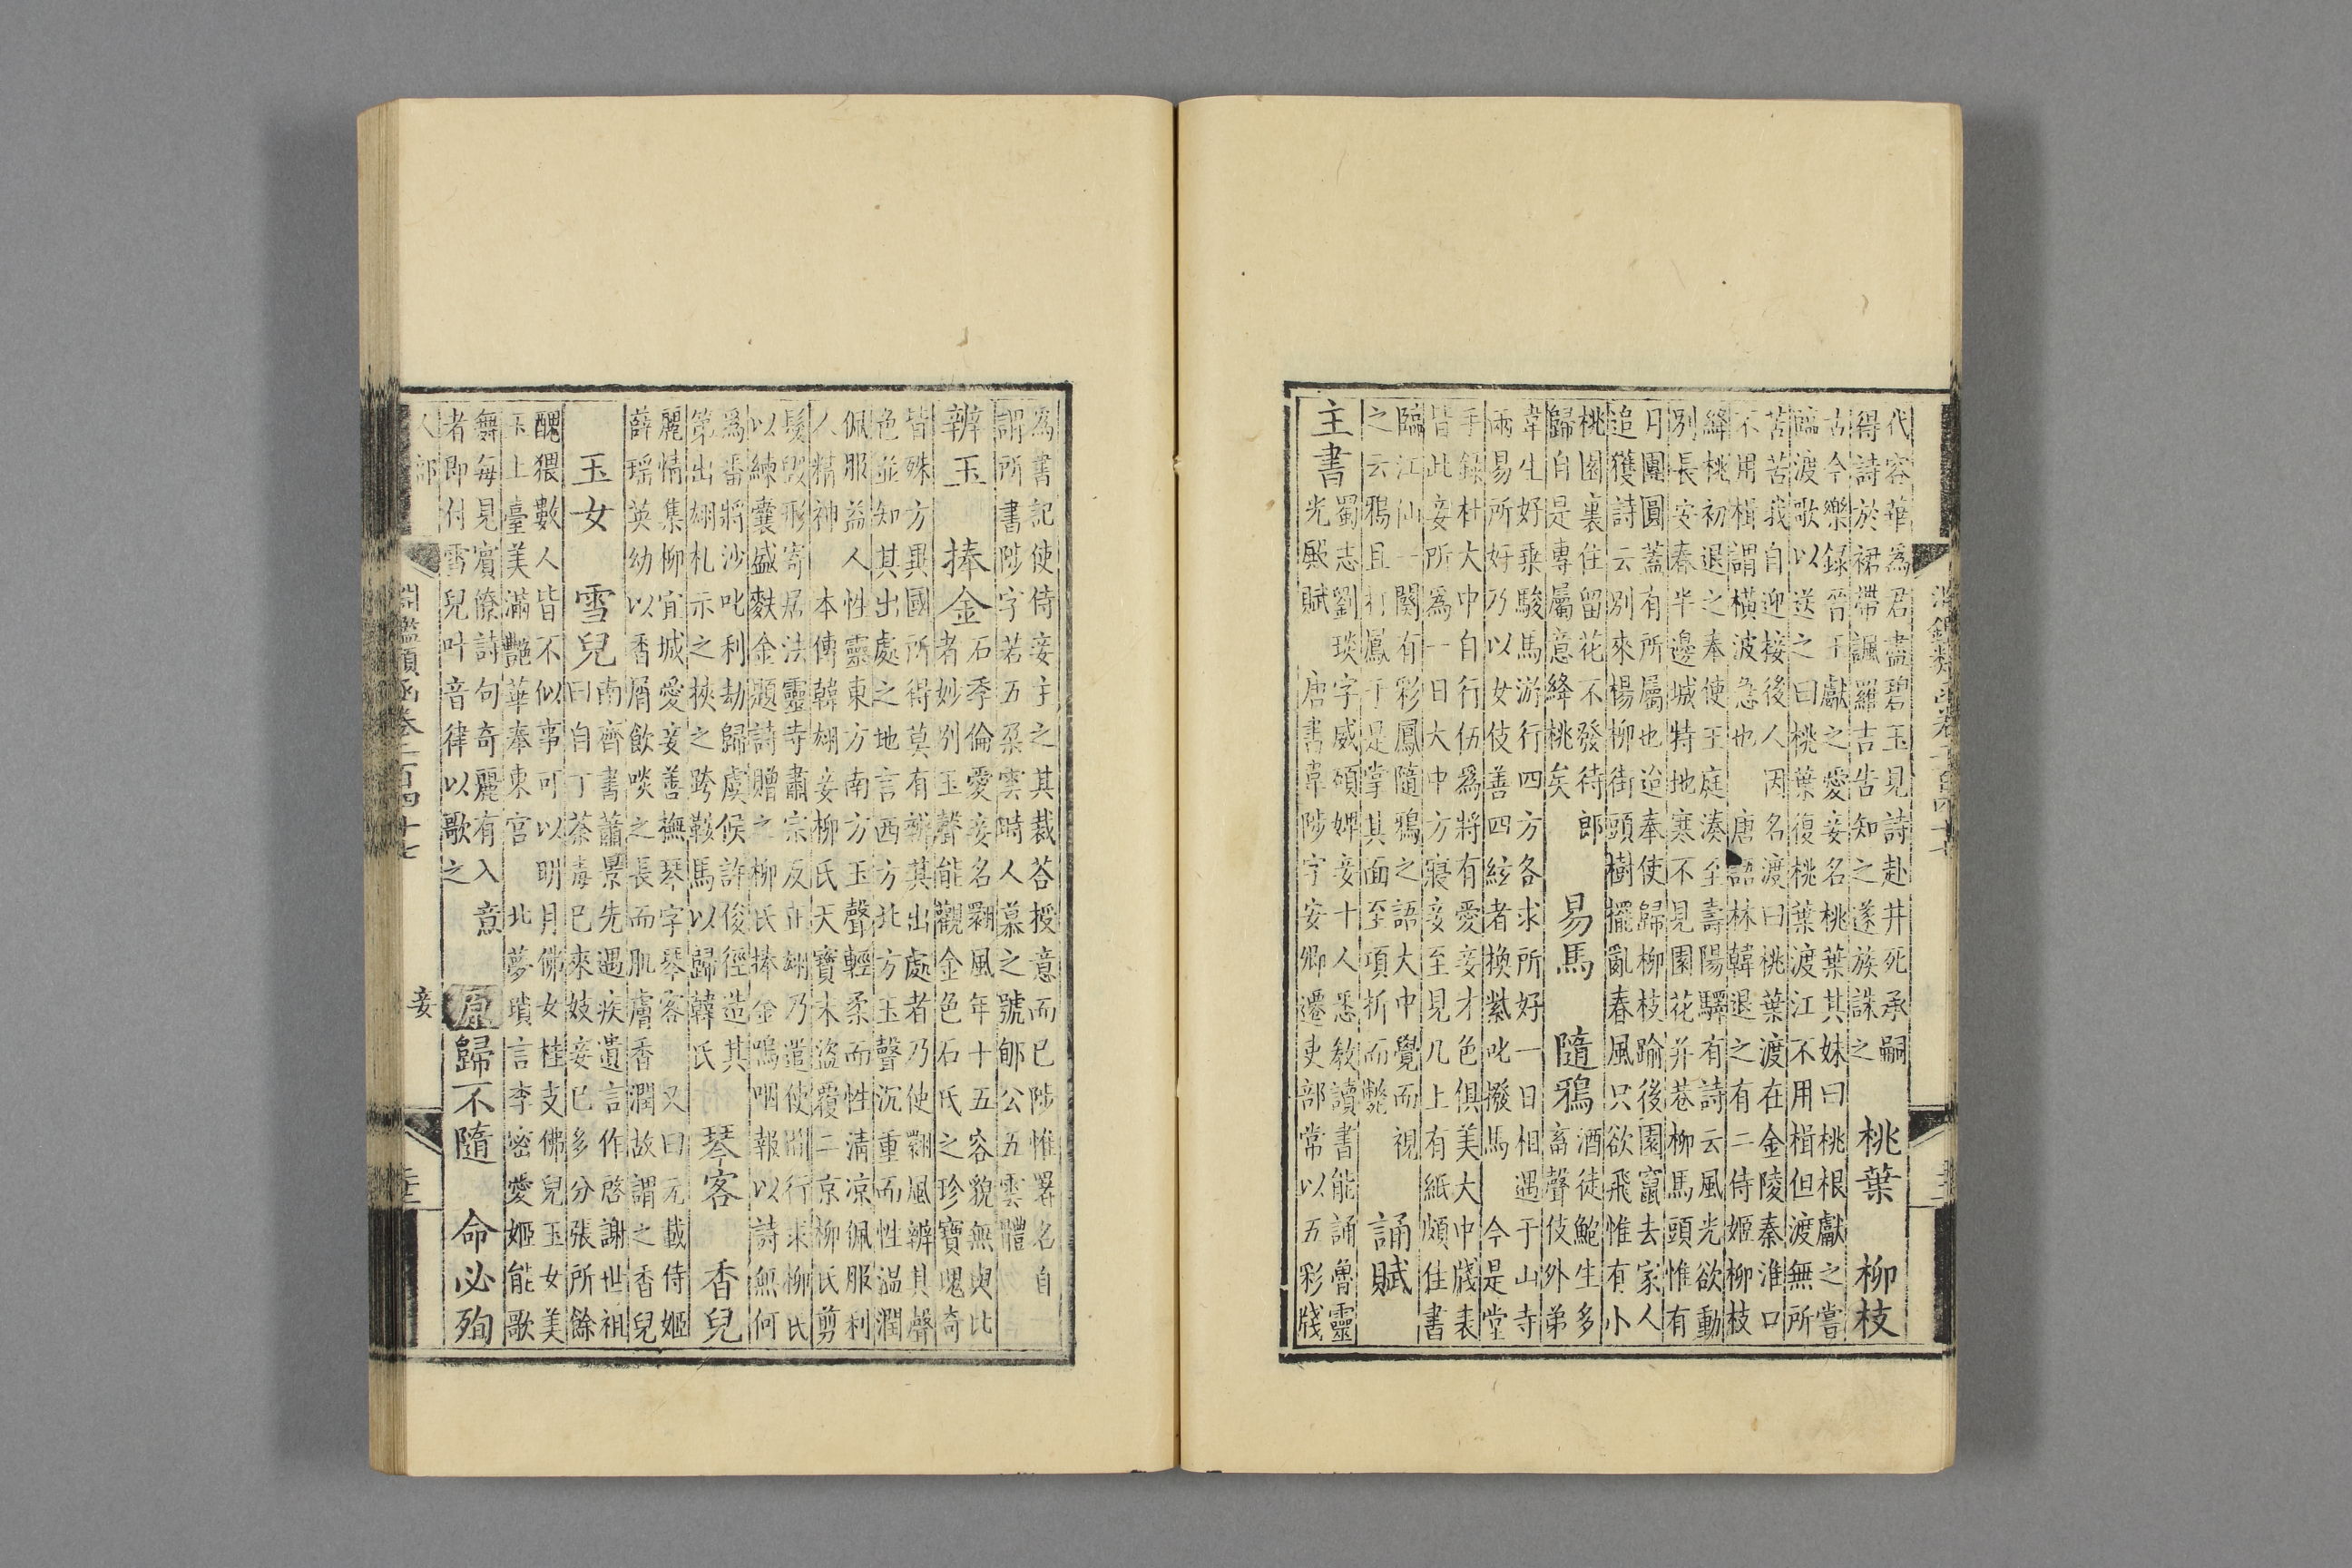 代容華為君盡碧玉見詩赴井死承嗣
得詩於裙帶諷羅吉告知之遂族誅之
桃葉 柳枝
古今樂録晉王獻之愛妾名桃葉其妹曰桃根獻之嘗
臨渡歌以送之曰桃葉復桃葉渡江不用楫但渡無所
苦苦我自迎接後人因名渡曰桃葉渡在金陵秦淮口
不用楫謂横波急也 唐語林韓退之有二侍姬柳枝
絳桃初退之奉使王庭湊至壽陽驛有詩云風光欲動
別長安春半邊城特地寒不見園花并巷柳馬頭惟有
月團圓蓋有所屬也迨奉使歸柳枝踰後園竄去家人
追獲詩云別來楊柳街頭樹擺亂春風只欲飛惟有小
桃園裏住留花不發待郎
歸自是專屬意絳桃矣
易馬 隨鴉
酒徒鮑生多
畜聲伎外弟
韋生好乘駿馬游行四方各求所好一日相遇于山寺
兩易所好乃以女伎善四絃者換紫叱撥馬 今是堂
手録杜大中自行伍為將有愛妾才色俱美大中牋表
皆此妾所爲一日大中方寢妾至見几上有紙頗佳書
臨江仙一闋有彩鳳隨鴉之語大中覺而視
之云鴉且打鳳于是掌其面至項折而斃
誦賦
主書
蜀志劉琰字威碩婢妾十人悉教讀書能誦魯靈
光殿賦 唐書韋陟字安卿遷吏部常以五彩牋
為書記使侍妾主之其裁荅授意而已陟惟署名自
謂所書陟字若五朶雲時人慕之號郇公五雲體
辨玉 捧金
石季倫愛妾名翾風年十五容貌無與比
者妙別玉聲能觀金色石氏之珍寶瑰奇
皆殊方異國所得莫有辨其出處者乃使翾風辨其聲
色並知其出處之地言西方北方玉聲沉重而性温潤
佩服益人性靈東方南方玉聲輕柔而性清凉佩服利
人精神 本傳韓翃妾柳氏天寶末盜覆二京柳氏剪
髮毀形寄居法靈寺肅宗反正翃乃遣使間行求柳氏
以練囊盛麩金題詩贈之柳氏捧金嗚咽報以詩無何
爲番將沙叱利劫歸虞候許俊徑造其
第出翃札示之挾之跨鞍馬以歸韓氏
琴客 香兒
麗情集柳宜城愛妾善撫琴字琴客 又曰元載侍姬
薛瑶英幼以香屑飲啖之長而肌膚香潤故謂之香兒
玉女 雪兒
南齊書蕭景先遇疾遺言作啓謝世祖
曰自丁荼毒已來妓妾已多分張所餘
醜猥數人皆不似事可以明月佛女桂支佛兒玉女美
玉上臺美滿艷華奉東宫 北夢瑣言李密愛姬能歌
舞每見賓僚詩句奇麗有入意
者即付雪兒叶音律以歌之
原 歸不隨 命必殉
人部
淵鑑類函卷二百四十七
妾